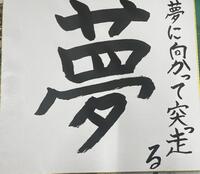 夢
夢に向かって突っ走
る